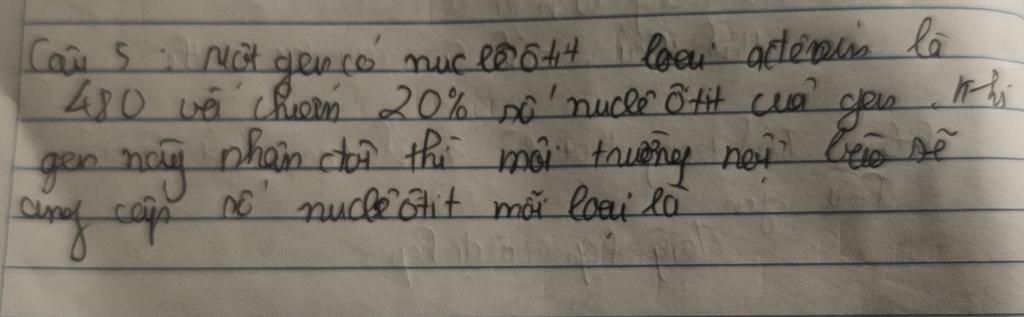 Câu 5 : Một gen có nuclêôtit loại ađênin là
480 và chiếm 20% số nuclêôtit của gen. Khi
gen này nhân đôi thì môi trường nội bào sẽ
cung cấp số nuclêôtit mỗi loại là